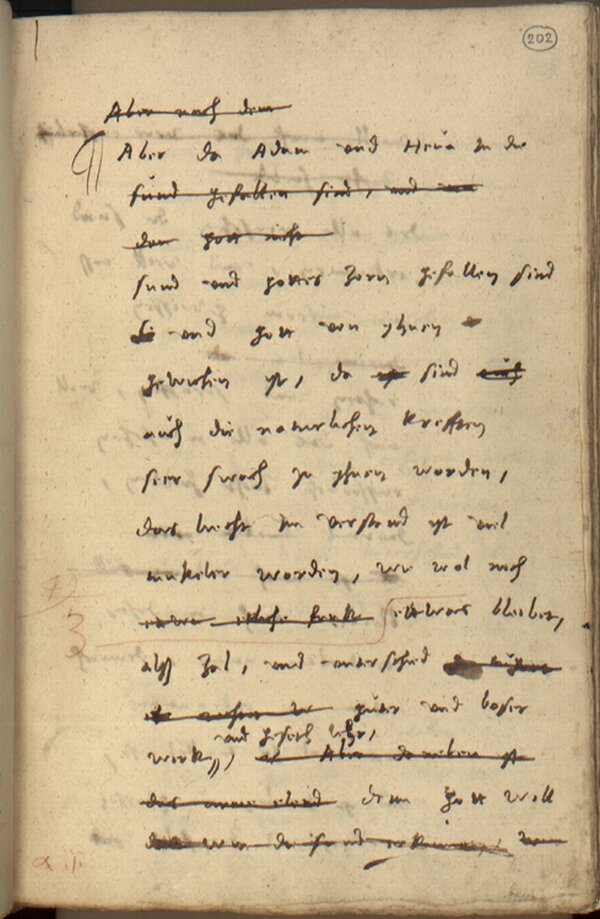 202
Aber nach dem
Aber da Adam und Heua in die
sund gefallen sind, und
der gott nicht
sund und gottes zorn gefallen sind
und gott von yhnen
gewichen ist, da sind
auch die naturlichen krefften
seer swach yn yhnen worden,
das liecht im verstand ist viel
tunkeler worden, wie wol noch
ettwas bleibet,
alß zal, und unterschid
guter und boser
und gesetz lehr,
werk, Aber daneben ist
das arme elend denn gott will